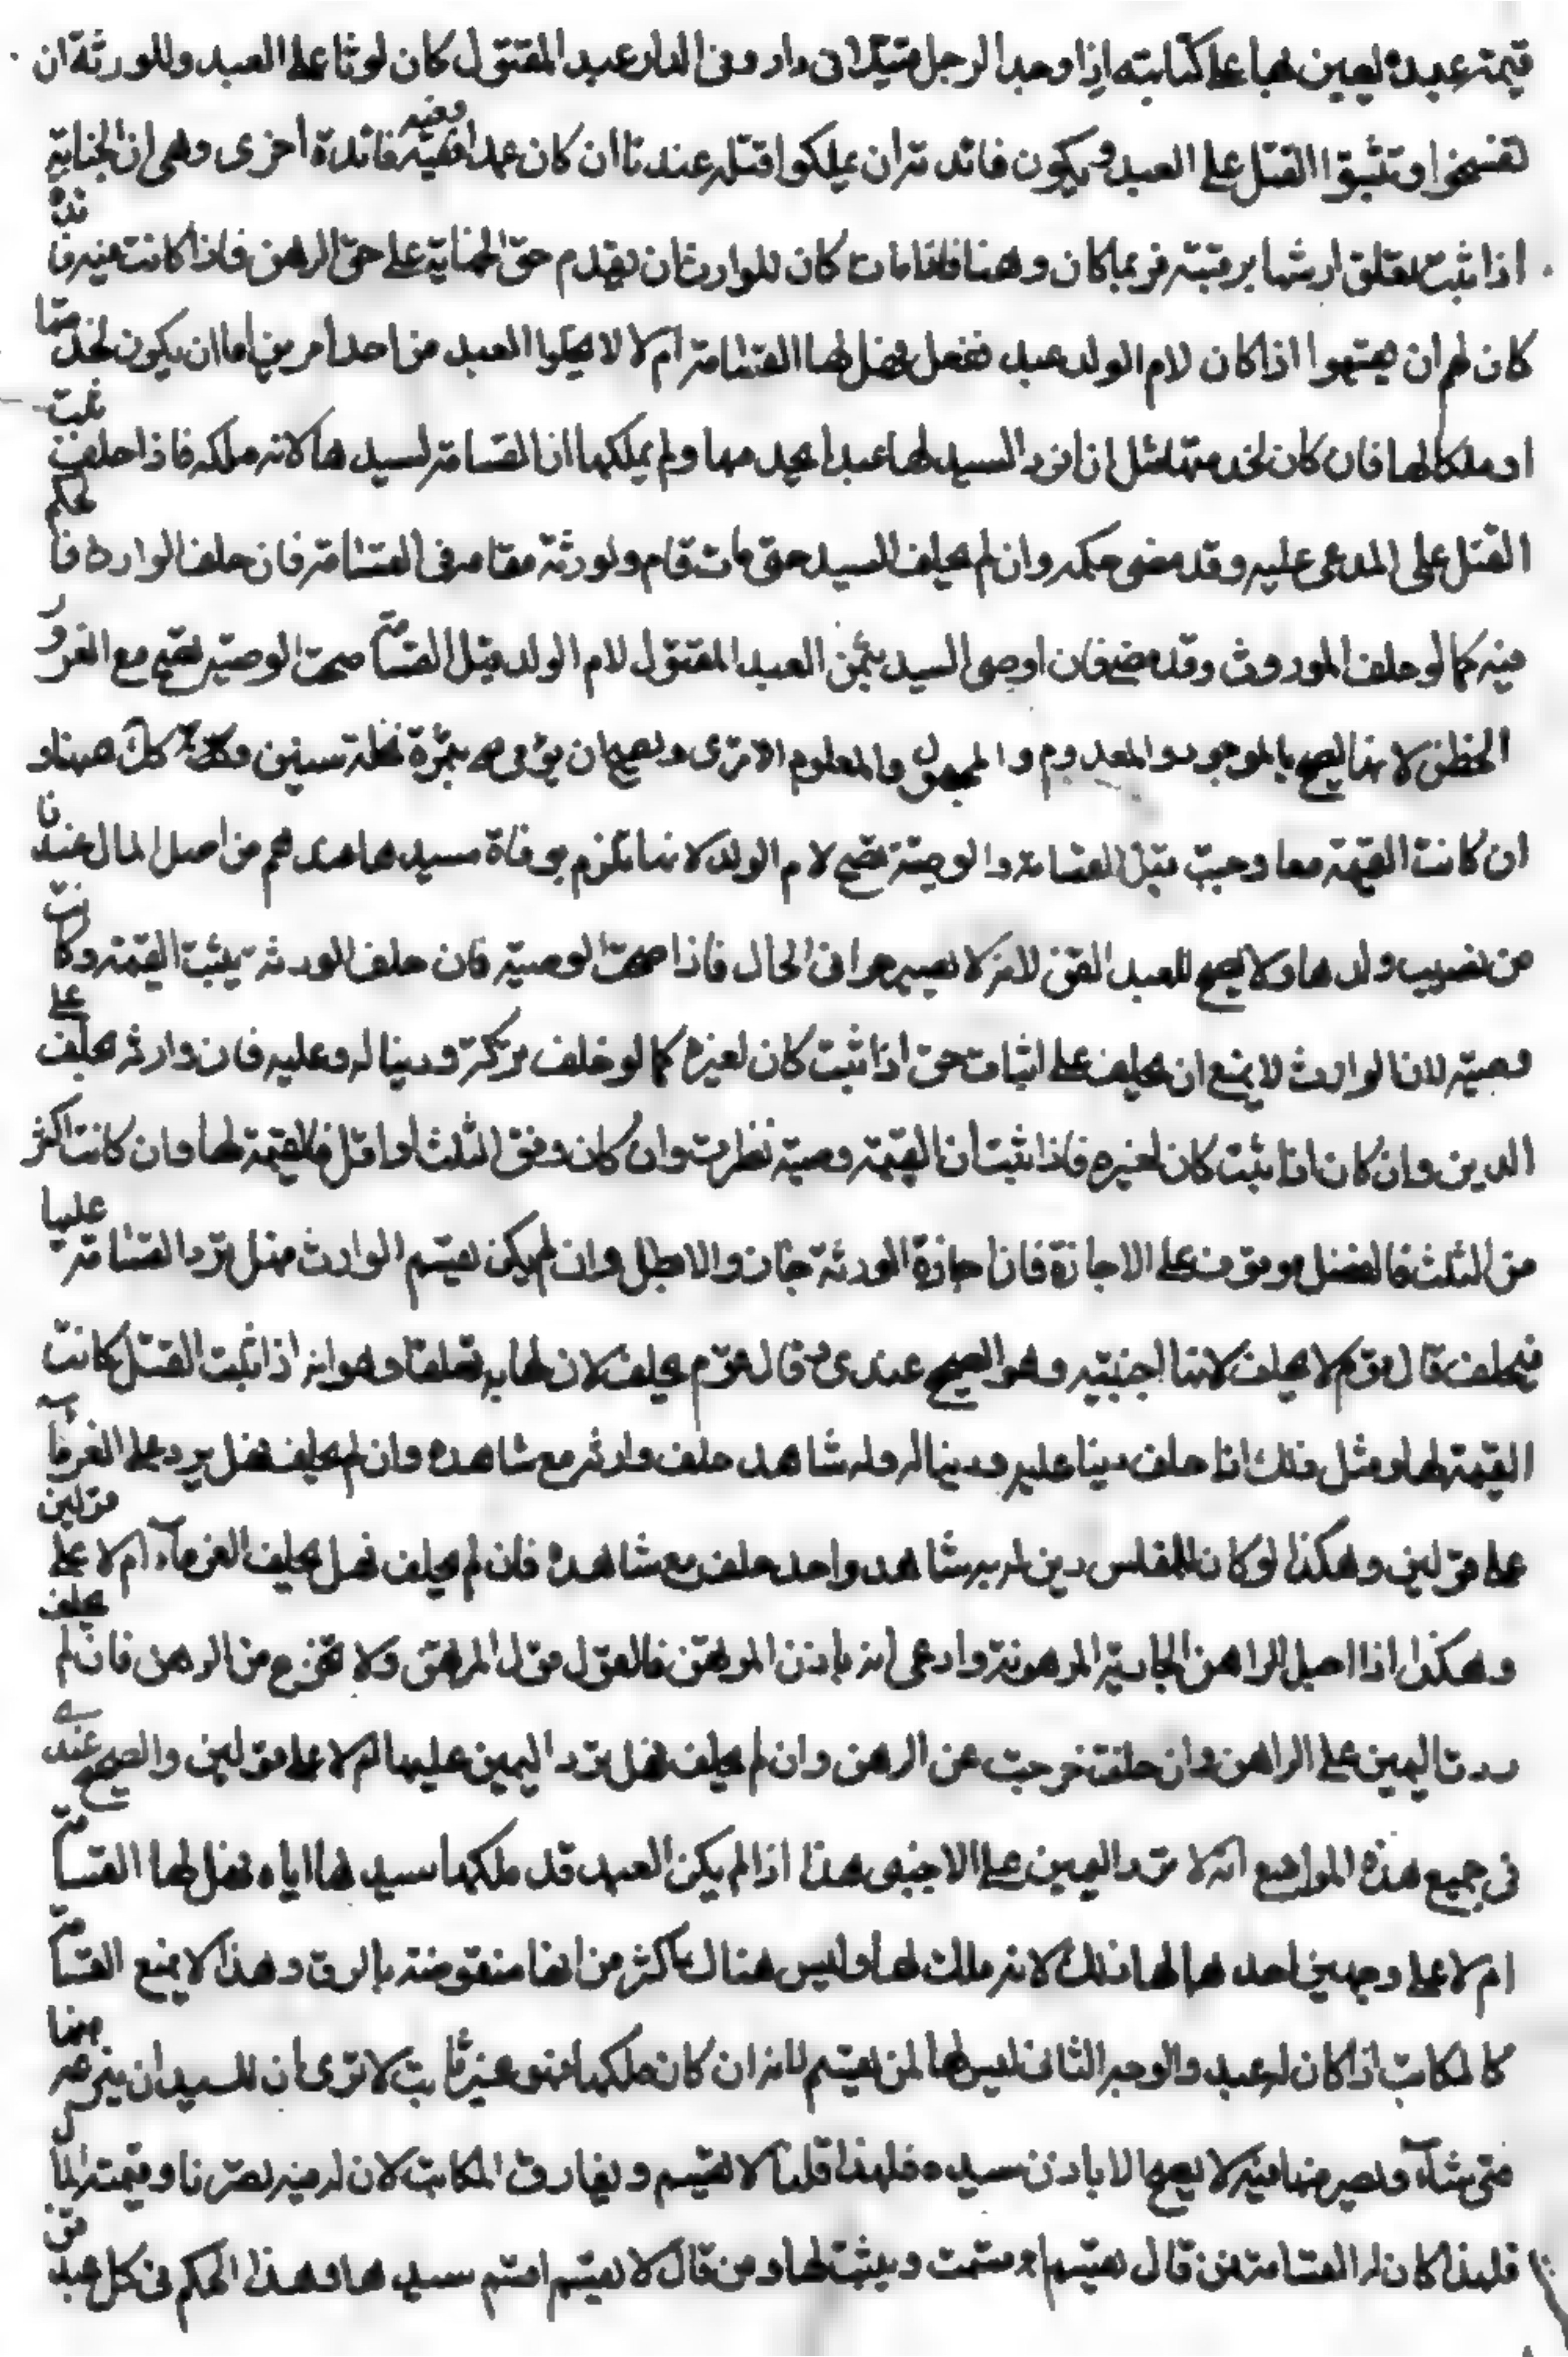 قيمة عبده ليعين بها على كتابته اذا وجد الرجل قتيلا في دار وفي الدار عبد المقتول كان لوثا على العبد وللورثة ان
تقسموا وتثبتوا القتل على العبد ويكون فائدته ان يملكوا قتله عندنا ان كان عمدا وفيه فائدة اخرى وهي ان الجناية
اذا ثبت تعلق ارشها برقبته فربما كان رهنا فاذا مات كان للوارث ان يقدم حق الجناية على حق الرهن فاذا كانت فيه فائدة
كان لهم ان يقسموا اذا كان لام الولد عبد فقتل فهل لها القسامة ام لا لا يخلوا العبد من احد امرين اما ان يكون لخدمتها
او ملكا لها فان كان لخدمتها مثل ان افرد السيد لها عبدا يخدمها ولم يملكها ان القسامة لسيدها لانه ملكه فاذا حلف ثبت
القتل على المدعى عليه وقد مضى حكمه وان لم يحلف السيد حتى مات قام ورثته مقامه في القسامة فان حلف الوارث فالحكم
فيه كما لو حلف الموروث وقد مضى فان اوصى السيد بثمن العبد المقتول لام الولد قبل القسامة صحت الوصية تصح مع الغرر و
الخطر لانها تصح بالموجود والمعدوم والمجهول والمعلوم الا ترى ويصح ان يوصى له بثمرة نخلة سنين وكذلك هيهنا و
ان كانت القيمة معا وجبت قبل القسامة والوصية تصح لام الولد لانها تلزم بوفاة سيدها عندهم من اصل المال عندنا
من نصيب ولدها ولا يصح للعبد القن لانه لا يصير حرا في الحال فاذا صحت الوصية فان حلف الورثة يثبت القيمة وكانت
وصية لان الوارث لا يمنع ان يحلف على اثبات حق اذا ثبت كان لغيره كما لو خلف تركة ودينا له وعليه فان وارثه يحلف على
الدين وان كان اذا ثبت كان لغيره فاذا ثبت ان القيمة وصية نظرت وان كان وفق الثلث او اقل فالقيمة لها وان كانت اكثر
من الثلث فالفضل موقوف على الاجازة فان اجازه الورثة جاز والا بطل وان لم يكن يقسم الوارث فهل ترد القسامة عليها
فيحلف قال قوم لا يحلف لانها اجنبية وهو الصحيح عندى وقال قوم يحلف لان لها به تعلقا وهو انه اذا ثبت القتل كانت
القيمة لها ومثل ذلك اذا خلف دينا عليه ودينا له وله شاهد حلف وارثه مع شاهده وان لم يحلف فهل يرد على الغرماء
على قولين وهكذا لو كان للمفلس دين له به شاهد واحد حلف مع شاهده فان لم يحلف فهل يحلف الغرماء ام لا على قولين
وهكذا اذا احبل الراهن الجارية المرهونة وادعى انه باذن المرتهن فالقول قول المرتهن ولا تخرج من الرهن فان لم يحلف
ردت اليمين على الراهن وان حلف خرجت عن الرهن وان لم يحلف فهل ترد اليمين عليها ام لا على قولين والصحيح عندى
في جميع هذه المواضع انه لا ترد اليمين على الاجنبي هذا اذا لم يكن العبد قد ملكها سيدها اياه فهل لها القسامة
ام لا على وجهين احدهما لها ذلك لانه ملك لها وليس هناك باكثر من انها منقوصة بالرق وهذا لا يمنع القسامة
كالمكاتب اذا كان له عبد والوجه الثانى ليس لها ان يقسم لانه ان كان ملكها فهو غير ثابت الا ترى ان للسيد ان ينزعه منها
متى شاء وتصرفها فيه لا يصح الا باذن سيده فلهذا قلنا لا تقسم ويفارق المكاتب لان له فيه تصرفا وقيمته المال
فلهذا كان له القسامة فمن قال يقسم اقسمت ويثبت لها ومن قال لا يقسم اقسم سيدها وهذا الحكم في كل عبد قن